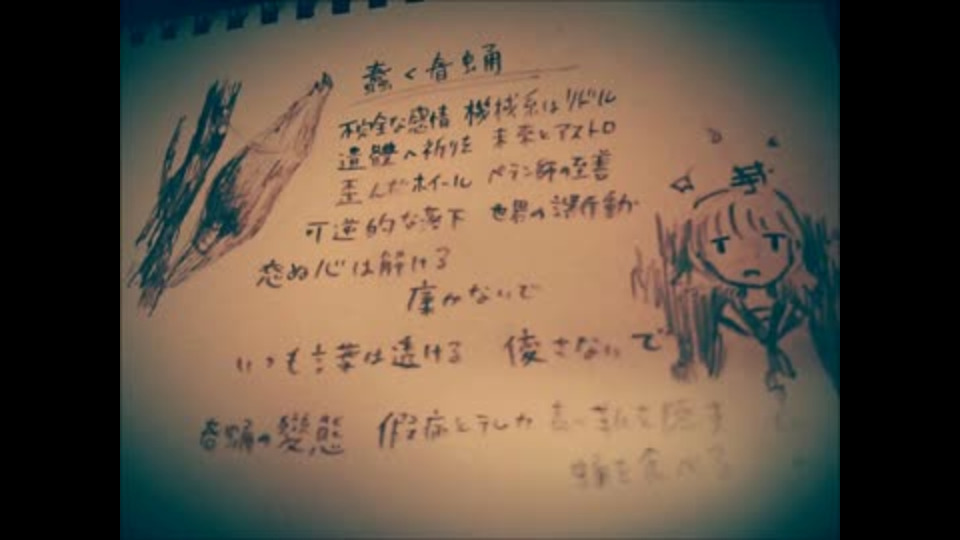 蠢く春蛹
不完全な感情 機械系はリドル
遺體へ祈りを 未來とアストロ
歪んだホイール ペテン師の至善
可逆的な落下 世界の誤作動
恋ぬ心は解ける
廉かないで
いつも言葉は透ける 傻さないで
春蛹の變態 假症とテレカ
を食べる